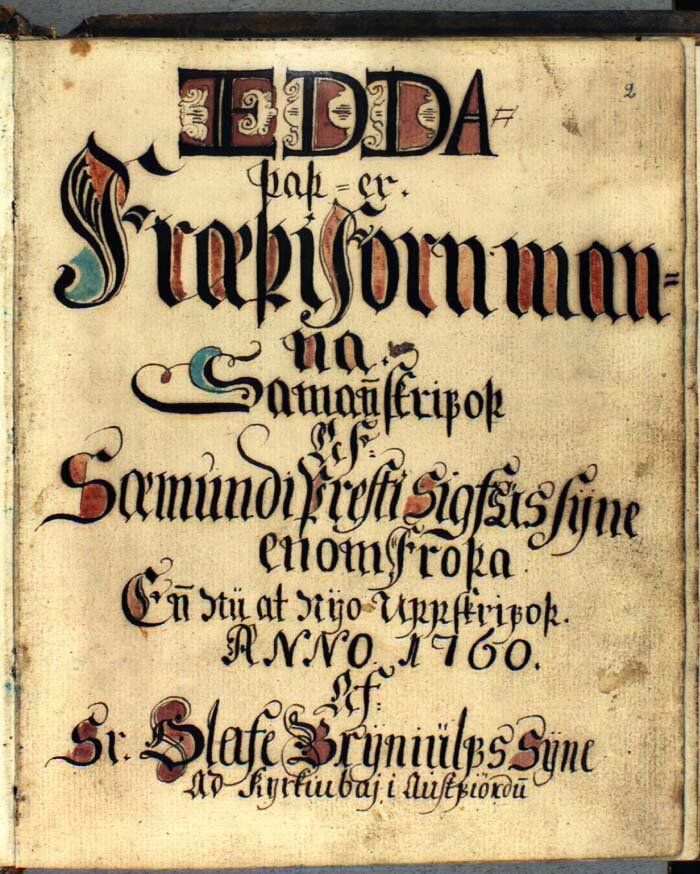 2
EDDA=
þaþ = er.
Fræþi Fornman=
na.
Samañskrifoþ
Af:
Sæmundi Presti Sigfüs syne
enom Froþa
Eñ Nü at Nÿo Uppskrifoþ.
ANNO. 1760.
Af:
Sr. Olafe Brÿniülfs Sÿne
Ad Kyrkiubæ i Austfiördū